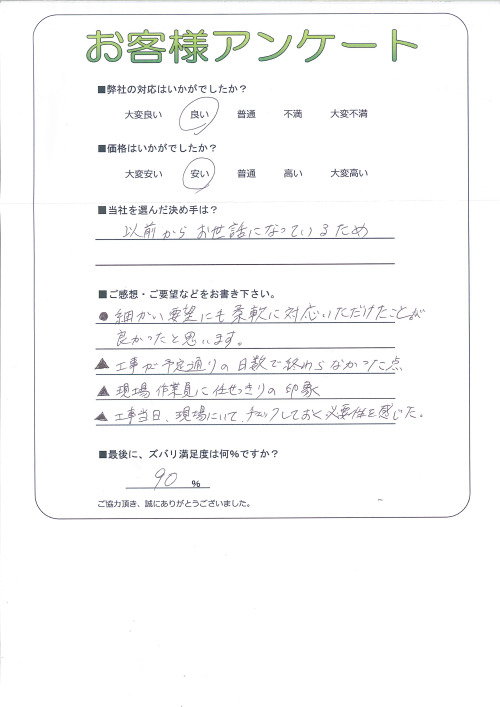 お客様アンケート
■弊社の対応はいかがでしたか？
大変良い 良い 普通 不満 大変不満
■価格はいかがでしたか？
大変安い 安い 普通 高い 大変高い
■当社を選んだ決め手は？
以前からお世話になっているため
■ご感想・ご要望などをお書き下さい。
●細かい要望にも柔軟に対応いただけたことが
良かったと思います。
▲工事が予定通りの日数で終わらなかった点
▲現場作業員に任せっきりの印象
▲工事当日、現場にいて、チェックしておく必要性を感じた。
■最後に、ズバリ満足度は何％ですか？
90 ％
ご協力頂き、誠にありがとうございました。